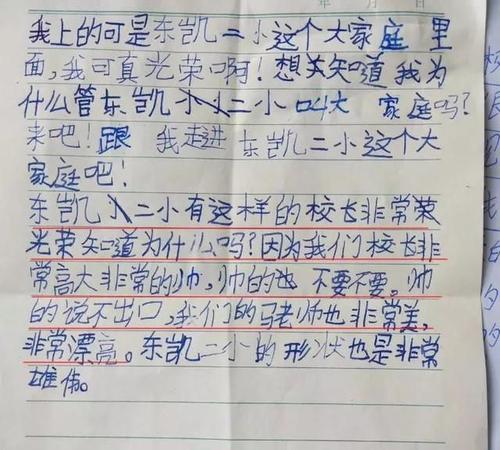 年 月 日
我上的可是东凯二小这个大家庭里
面，我可真光荣啊！想关知道我为
什么管东凯小二小叫大家庭吗？
来吧！跟我走进东凯二小这个大
家庭吧！
东凯二小有这样的校长非常荣
光荣知道为什么吗？因为我们校长非
常高大非常的帅，帅的也不要不要。帅
的说不出口，我们的马老帅也非常美，
非常漂亮。东凯二小的形状也是非常
雄伟。